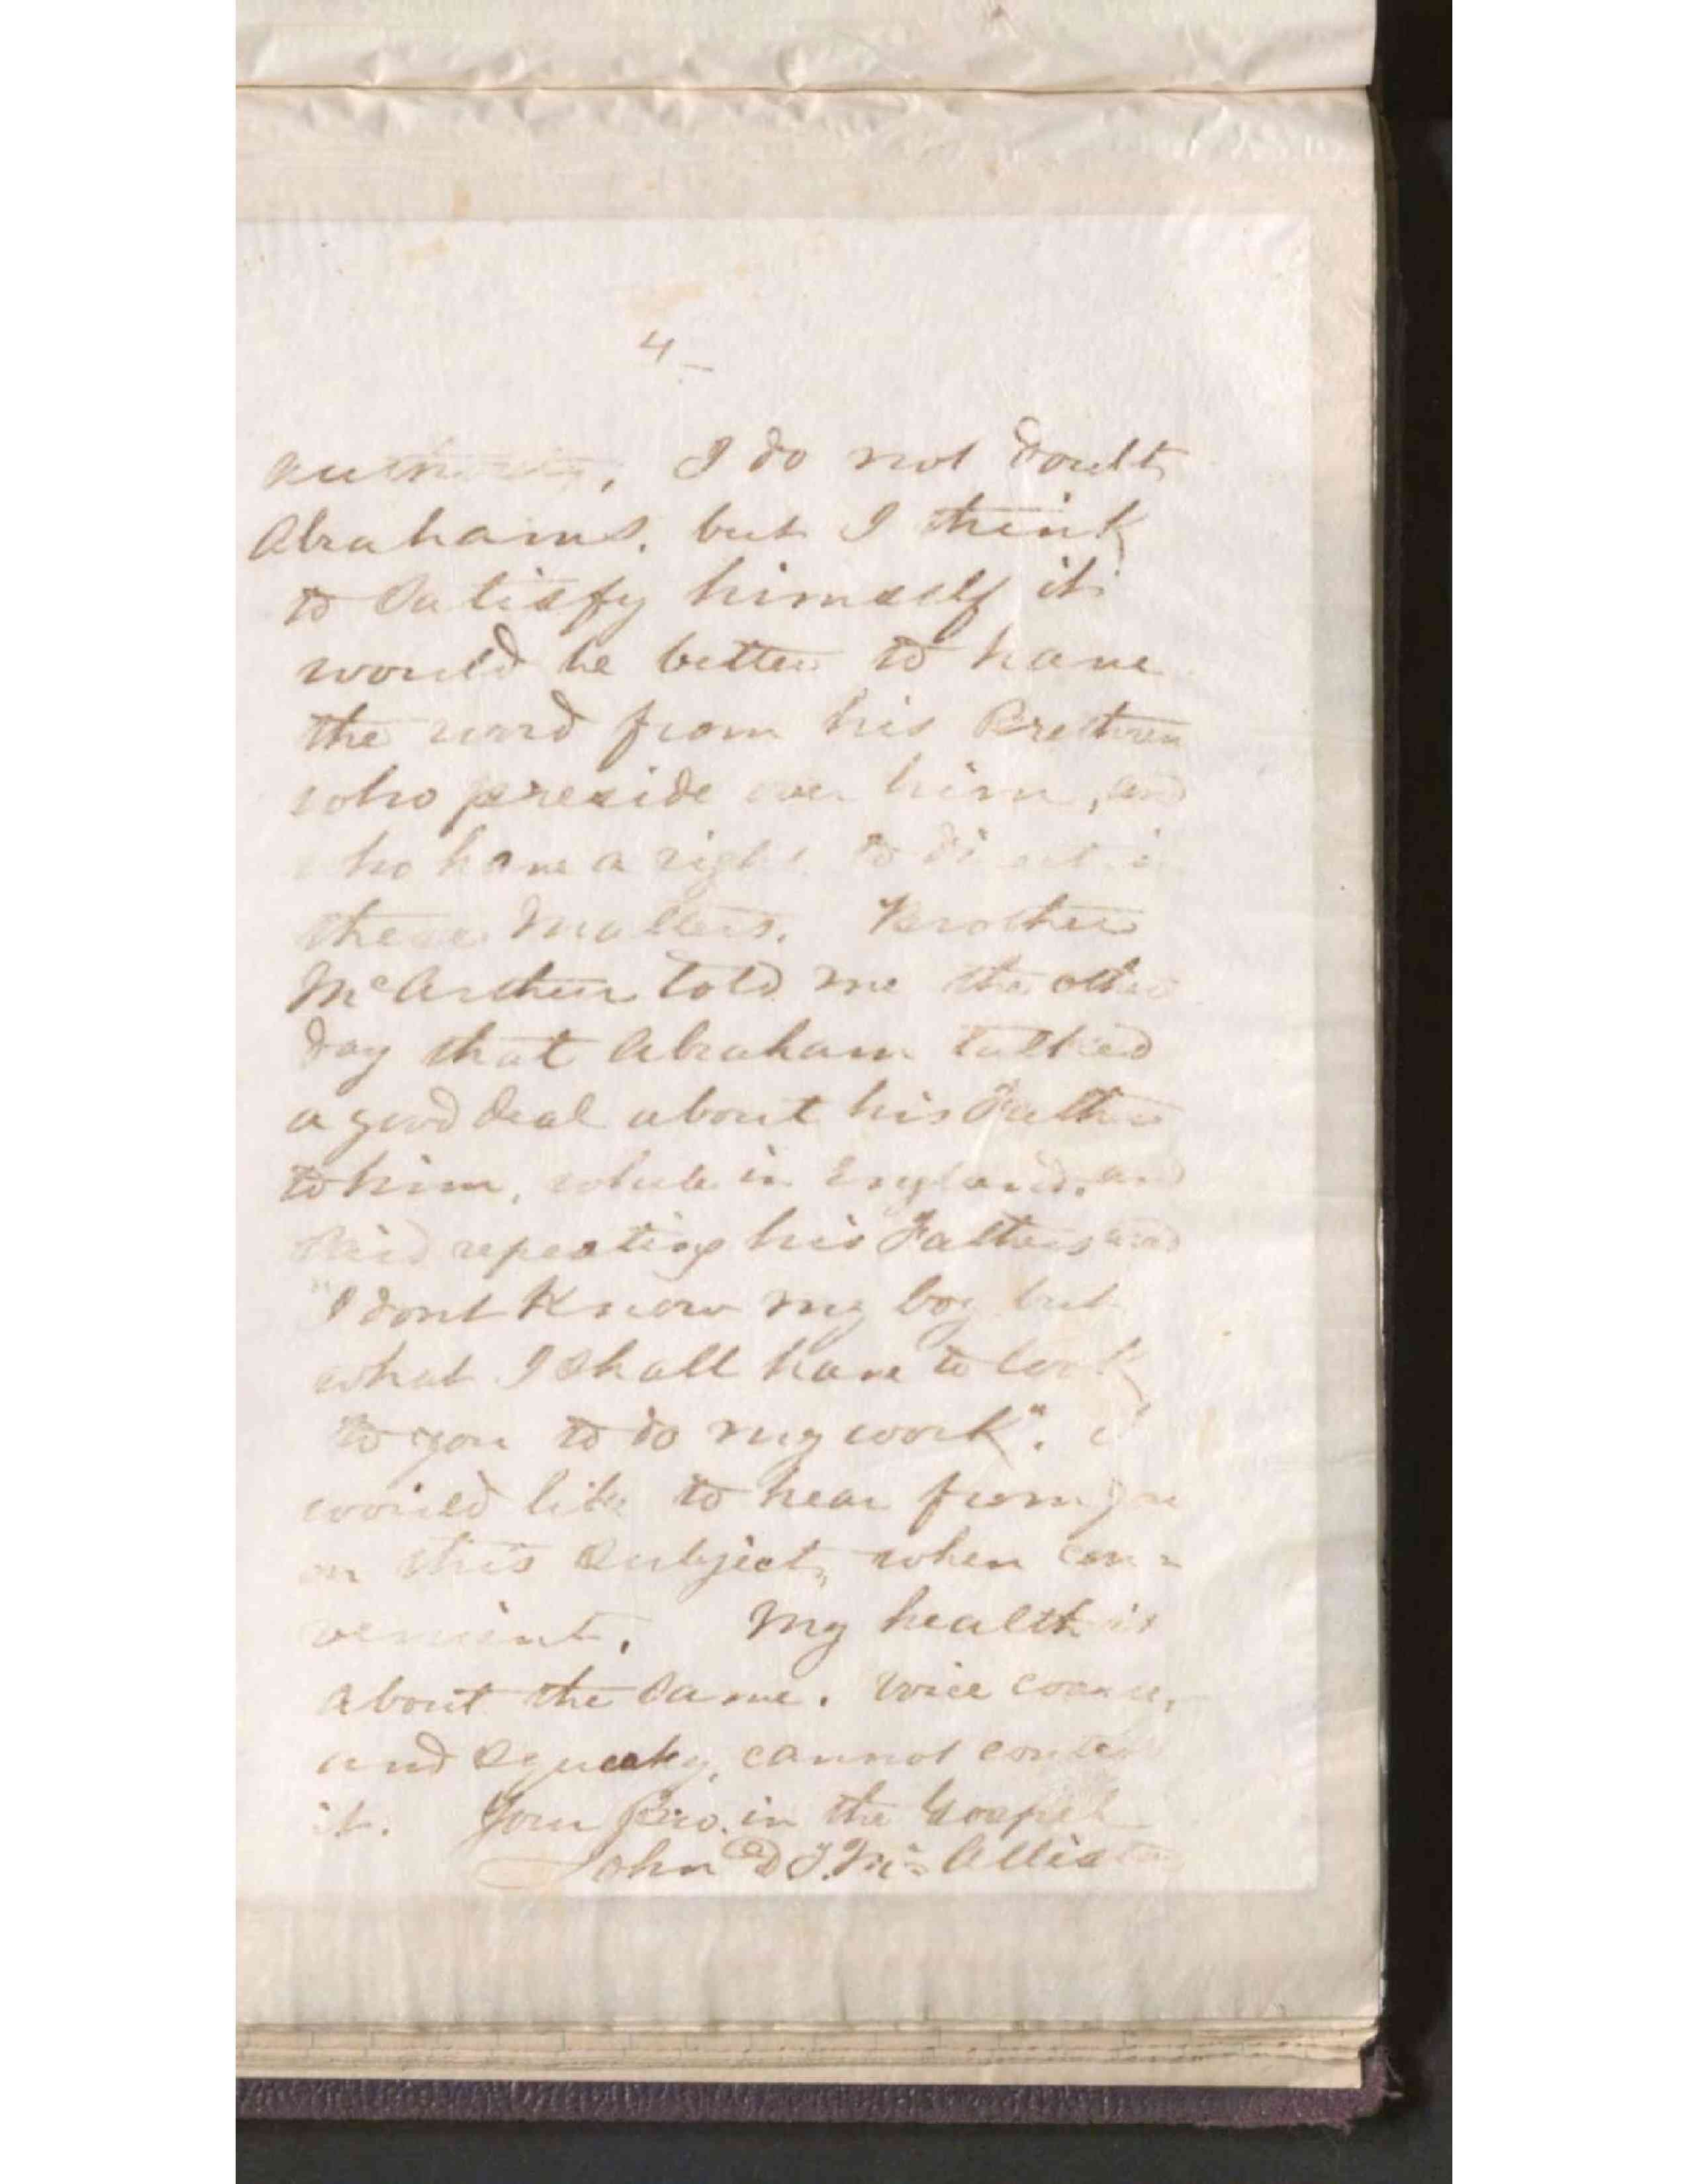 4_
authority, I do not doubt
Abrahams. but I think
to Satisfy himself it
would be better to have
the word from his Brethren
who preside over him, and
who have a right to direct in
these matters. Brother
McArthur told me the other
day that Abraham talked
a good deal about his Father
to him, while in England, and
said repeating his Fathers word
"I dont Know my boy but
what I shall have to look
to you to do my work". I
would like to hear from you
on this Subject, when con=
venient. My health is
about the Same. voice coarse,
and Squeaky, cannot control
it. Your Bro. in the Gospel
John D T. McAllister